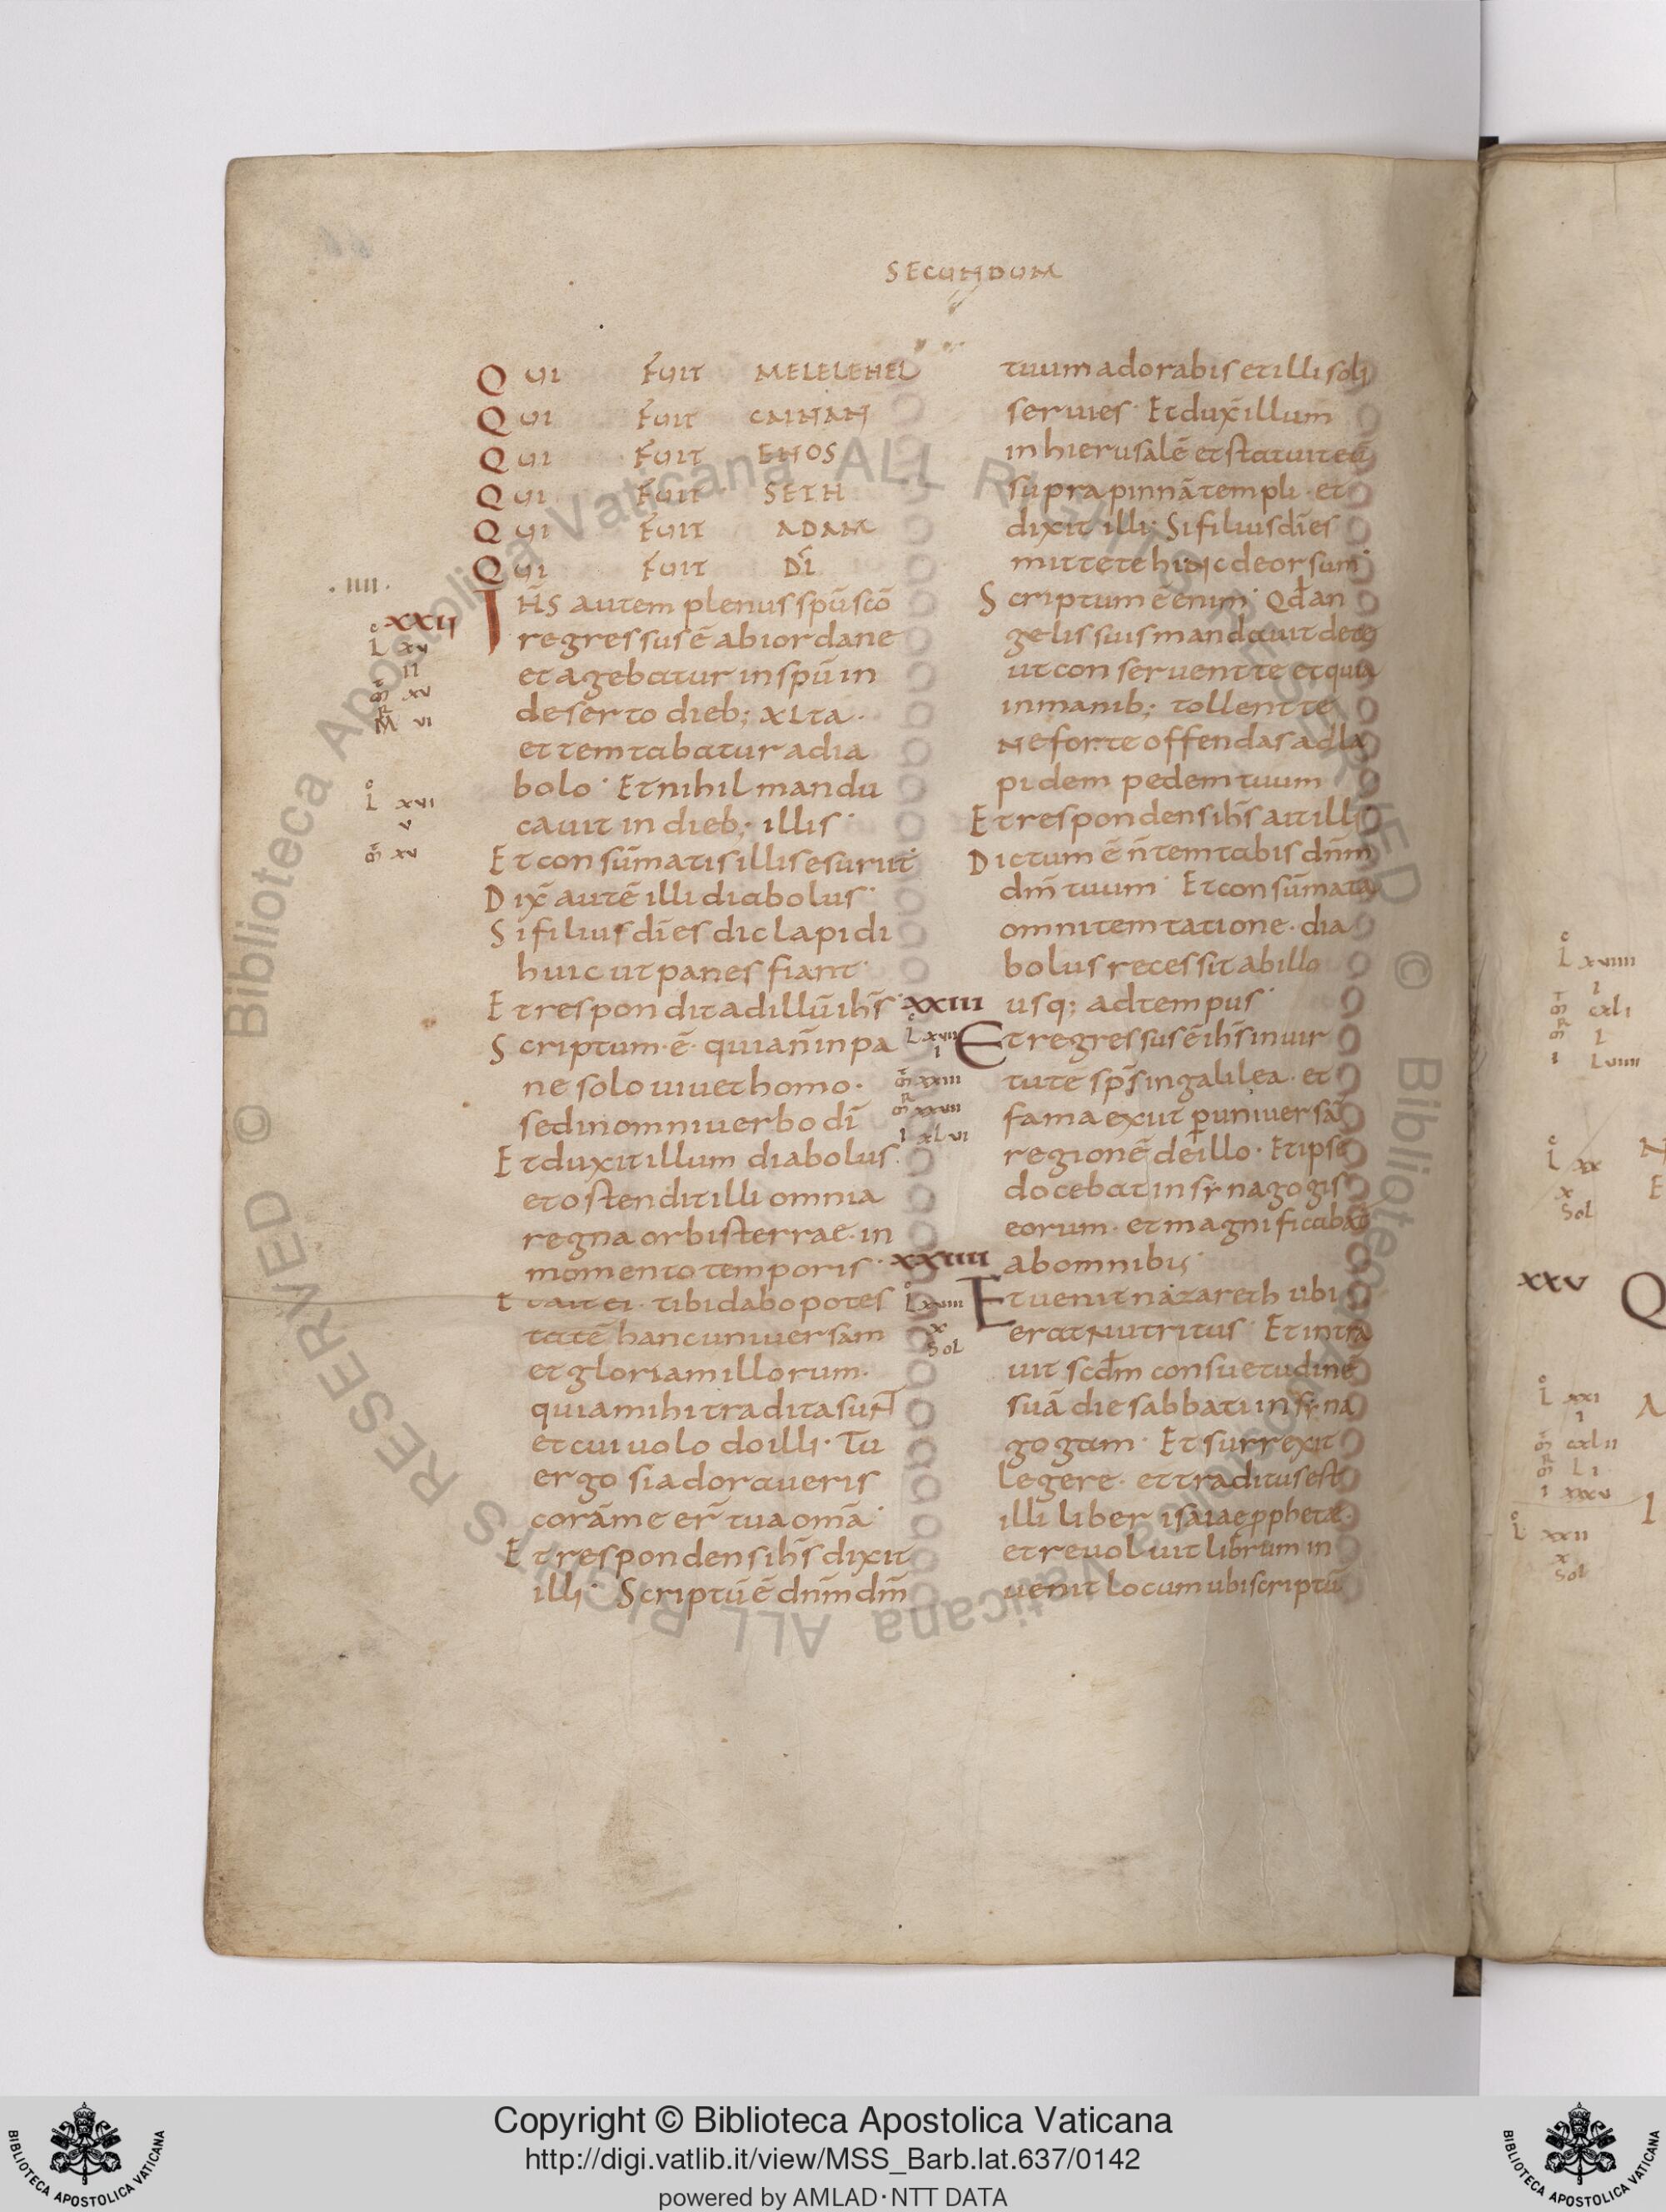 SECUNDUM
QUI FUIT MELELEHEL
QUI FUIT CAINAN
QUI FUIT ENOS
QUI FUIT SETH
QUI FUIT ADAM
QUI FUIT DĪ
. IIII .
XXII
L XV
II
m̄ XV
M VI
L XVI
V
m̄ XV
IH̄S autem plenus spū scō
regressus ē ab iordane
et agebatur in spū in
deserto dieb; XLta.
et temtabatur a dia
bolo· Et nihil mandu
cavit in dieb; illis·
Et consūmatis illis esuriit·
Dix̄ autē illi diabolus·
Si filius dī es dic lapidi
huic ut panes fiant·
Et respondit ad illū ih̄s·
Scriptum· ē· quia n̄ in pa
ne solo vivet homo·
sed in omni verbo dī
Et duxit illum diabolus·
et ostendit illi omnia
regna orbis terrae· in
momento temporis·
Et ait ei· tibi dabo potes
tatē hanc universam
et gloriam illorum·
quia mihi tradita sunt
et cui volo do illi· Tu
ergo si adoraveris
corā me er̄ tua omā·
Et respondens ih̄s dixit
illi· Scriptū ē dn̄m dm̄
tuum adorabis et illi soli
servies· Et dux̄ illum
in hierusalē et statuit eū
supra pinnā templi· et
dixit illi· Si filius dī es
mitte te hinc deorsum·
Scriptum ē enim· Qd̄ an
gelis suis mandavit de te
ut conservent te et quia
in manib; tollent te
Ne forte offendas ad la
pidem pedem tuum
Et respondens ih̄s ait illi
Dictum ē n̄ temtabis dn̄m
dm̄ tuum· Et consūmata
omni temtatione· dia
bolus recessit ab illo
usq; ad tempus·
XXIII
L XVII
I
m̄ XXIII
m̄ XXVII
I XLVI
Et regressus ē ih̄s in vir
tutē sp̄s in galilea· et
fama exiit p̱ universā
regionē de illo· Et ipse
docebat in synagogis
eorum· et magnificabat̄
ab omnibus·
XXIIII
L XVIII
X
Sol
Et venit nazareth ubi
erat nutritus· Et intra
vit scd̄m consuetudinē
suā die sabbati in syna
gogam· Et surrexit
legere· et traditus est
illi liber isaiae pphetae·
et revolvit librum in
venit locum ubi scriptū
L XVIIII
I
m̄ cxli
m̄ L
I LVIIII
L XX
X
Sol
XXV
Q
L XXI
I
m̄ cxlii
m̄ LI
I XXXV
L XXII
X
Sol
© Biblioteca Apostolica Vaticana ALL RIGHTS RESERVED © Biblioteca Apostolica Vaticana ALL RIGHTS RESERVED
BIBLIOTECA APOSTOLICA VATICANA
Copyright © Biblioteca Apostolica Vaticana
http://digi.vatlib.it/view/MSS_Barb.lat.637/0142
powered by AMLAD·NTT DATA
BIBLIOTECA APOSTOLICA VATICANA